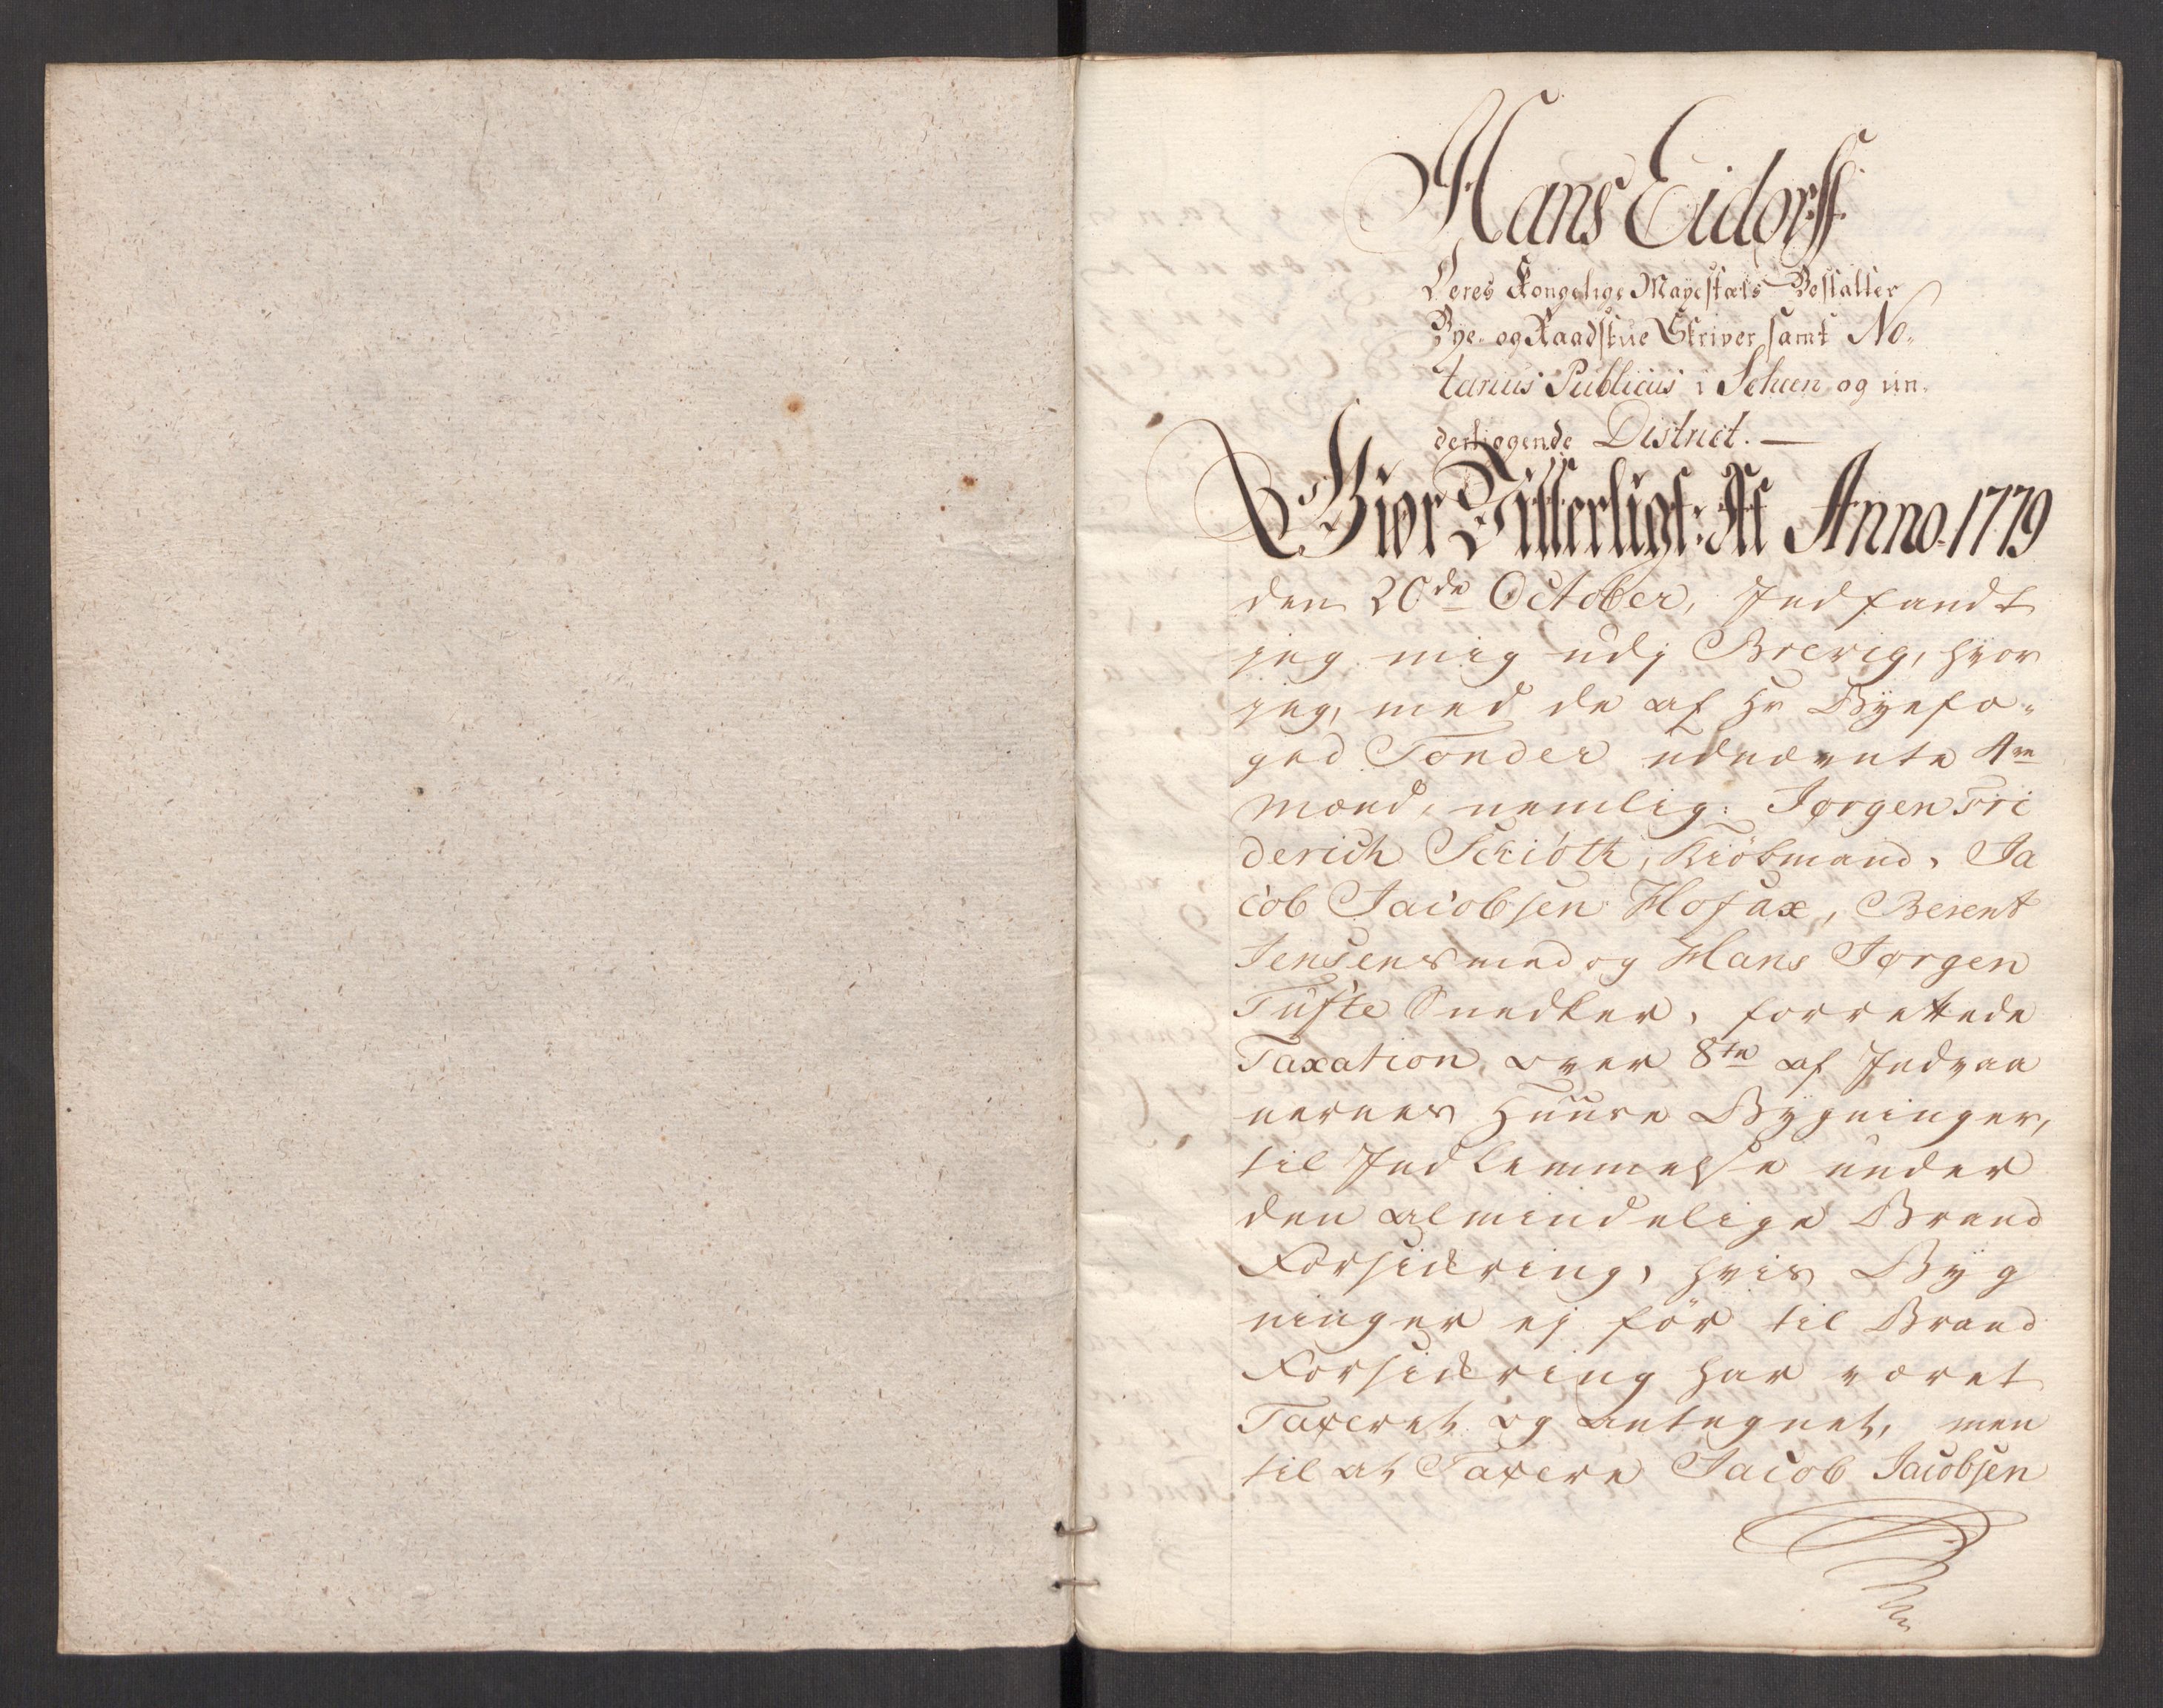 Hans Eidorff
Deres Kongelige Mayestæts Bestalter
Bye- og Raadstue Skriver, samt No-
tarius Publicus i Scheen og un-
derliggende District. —
Giør Vitterligt: At Anno. 1779
den 20de October, Indfandt
jeg mig udj Brevig, hvor
jeg, med de af Hr Byefo-
ged Tonder udnævnte 4re
Mænd, nemlig: Jørgen Fri
derich Schiöth, Kiöbmand, Ja
cob Jacobsen Hofax, Berent
Jensen Smed og Hans Jørgen
Tufte Snedker, forrettede
Taxation over 8te af Indvaa
nernes Huuse Bygninger,
til Indlemmelse under
den almindelige Brand
Forsickring, hvis Byg
ninger ej för til Brand
Forsickring har været
Taxeret og antegnet, men
til at Taxere Jacob Jacobsen